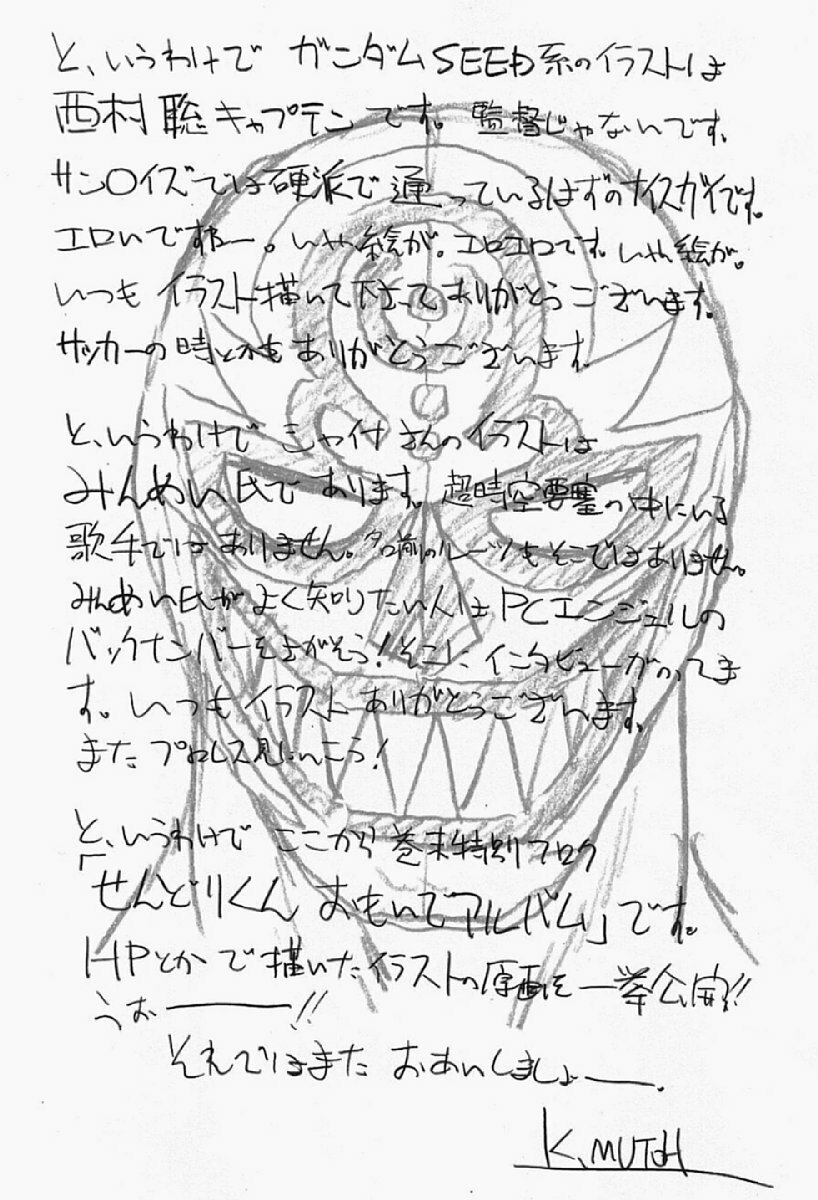 と、いうわけで ガンダムSEED系のイラストは
西村聡キャプテンです。監督じゃないです。
サン〇イズでは硬派で通っているはずのナイスガイです。
エロいですねー。いや絵が。エロエロです。いや絵が。
いつもイラスト描いて下さってありがとうございます。
サッカーの時とかもありがとうございます。
と、いうわけで シャア付さんのイラストは
みんめい氏であります。超時空要塞の中にいる
歌手ではありません。名前のルーツもそこではありません。
みんめい氏がよく知りたい人はPCエンジェルの
バックナンバーをさがそう!そこにインタビューがのってま
す。いつもイラストありがとうございます。
またプロレス見にいこう!
と、いうわけで ここから巻末特別フロク
「せんどりくん おもいでアルバム」です。
HPとかで描いたイラストの原画を一挙公開!!
うおーーー!!
それではまた おあいしましょーー。
K.MUTOH